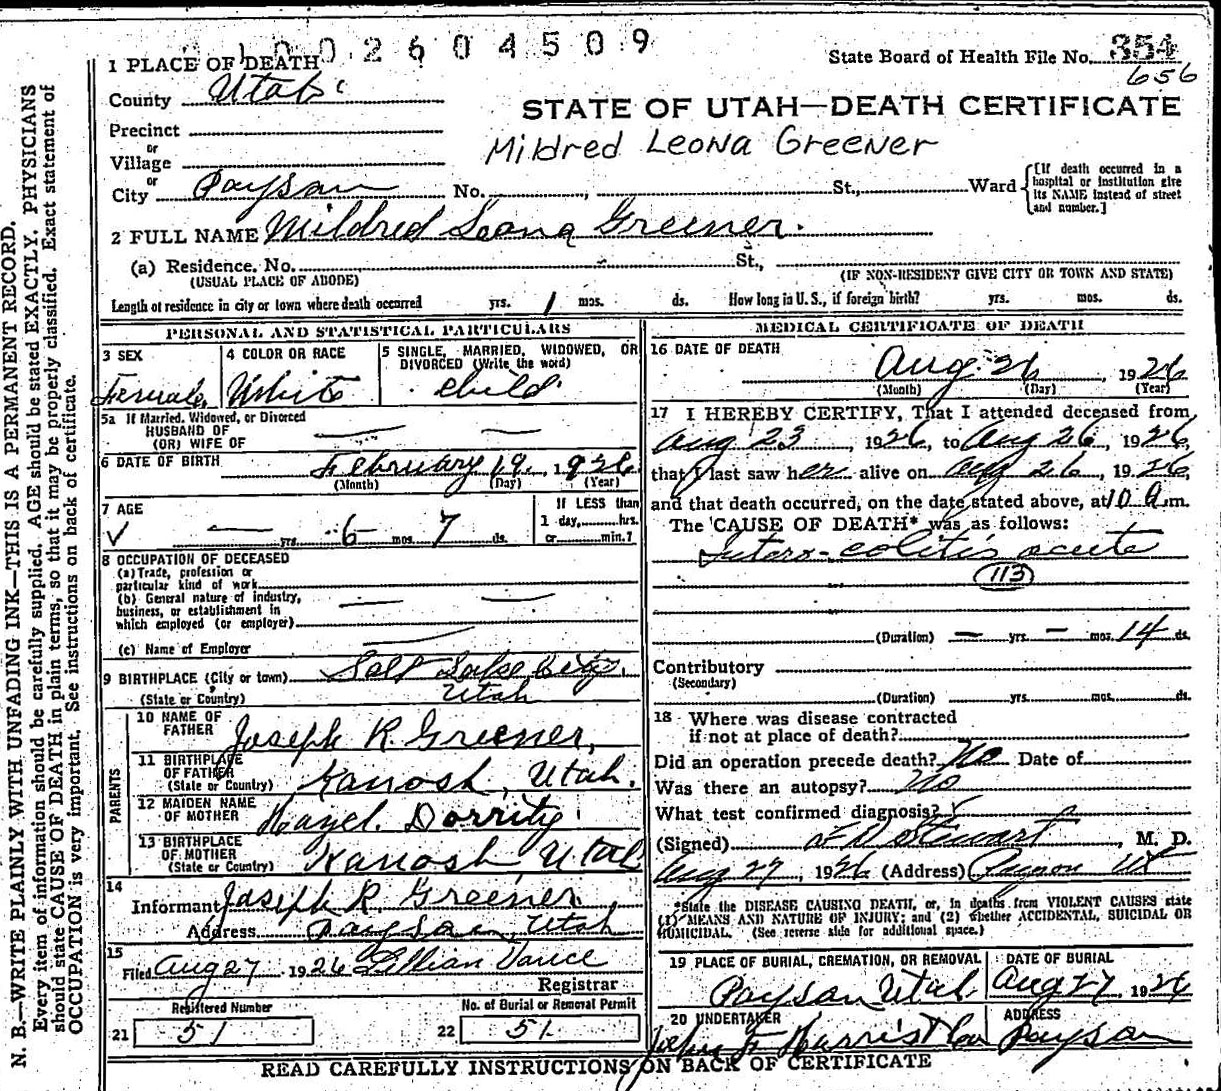 1002604509
State Board of Health File No. 354
656
1 PLACE OF DEATH
County Utah
STATE OF UTAH—DEATH CERTIFICATE
Precinct
or
Village
Mildred Leona Greener
or
City Payson No. St., Ward
[If death occurred in a hospital or institution give its NAME instead of street and number.]
2 FULL NAME Mildred Leona Greener.
(a) Residence. No. St.,
(USUAL PLACE OF ABODE) (IF NON-RESIDENT GIVE CITY OR TOWN AND STATE)
Length of residence in city or town where death occurred yrs. 1 mos. ds. How long in U. S., if foreign birth? yrs. mos. ds.
PERSONAL AND STATISTICAL PARTICULARS
3 SEX
Female
4 COLOR OR RACE
White
5 SINGLE, MARRIED, WIDOWED, OR
DIVORCED (Write the word)
child
5a If Married, Widowed, or Divorced
HUSBAND OF
(OR) WIFE OF
6 DATE OF BIRTH February 19, 1926
(Month) (Day) (Year)
7 AGE
— yrs. 6 mos. 7 ds.
If LESS than
1 day, hrs.
or min.?
8 OCCUPATION OF DECEASED
(a) Trade, profession or
particular kind of work
(b) General nature of industry,
business, or establishment in
which employed (or employer)
(c) Name of Employer
9 BIRTHPLACE (City or town) Salt Lake City,
(State or Country) Utah
PARENTS
10 NAME OF
FATHER Joseph R. Greener,
11 BIRTHPLACE
OF FATHER
(State or Country) Kanosh, Utah.
12 MAIDEN NAME
OF MOTHER Hazel Dorrity
13 BIRTHPLACE
OF MOTHER
(State or Country) Kanosh, Utah
14
Informant Joseph R. Greener
Address Payson, Utah
15
Filed Aug 27 1926 Lillian Vance
Registrar
Registered Number
21 51
No. of Burial or Removal Permit
22 51
MEDICAL CERTIFICATE OF DEATH
16 DATE OF DEATH
Aug 26, 1926
(Month) (Day) (Year)
17 I HEREBY CERTIFY, That I attended deceased from
Aug 23, 1926, to Aug 26, 1926,
that I last saw her alive on Aug 26, 1926,
and that death occurred, on the date stated above, at 10 a.m.
The CAUSE OF DEATH* was as follows:
Entero-colitis acute
113
(Duration) — yrs. — mos. 14 ds.
Contributory
(Secondary)
(Duration) yrs. mos. ds.
18 Where was disease contracted
if not at place of death?
Did an operation precede death? No Date of
Was there an autopsy? No
What test confirmed diagnosis?
(Signed) Stewart, M. D.
Aug 27, 1926 (Address) Payson Ut
*State the DISEASE CAUSING DEATH, or, in deaths from VIOLENT CAUSES state
(1) MEANS AND NATURE OF INJURY; and (2) whether ACCIDENTAL, SUICIDAL OR
HOMICIDAL. (See reverse side for additional space.)
19 PLACE OF BURIAL, CREMATION, OR REMOVAL
Payson Utah
DATE OF BURIAL
Aug 27, 1926
20 UNDERTAKER
Harris
ADDRESS
Payson
READ CAREFULLY INSTRUCTIONS ON BACK OF CERTIFICATE
N. B.—WRITE PLAINLY WITH UNFADING INK—THIS IS A PERMANENT RECORD.
Every item of information should be carefully supplied. AGE should be stated EXACTLY. PHYSICIANS
should state CAUSE OF DEATH in plain terms, so that it may be properly classified. Exact statement of
OCCUPATION is very important. See instructions on back of certificate.